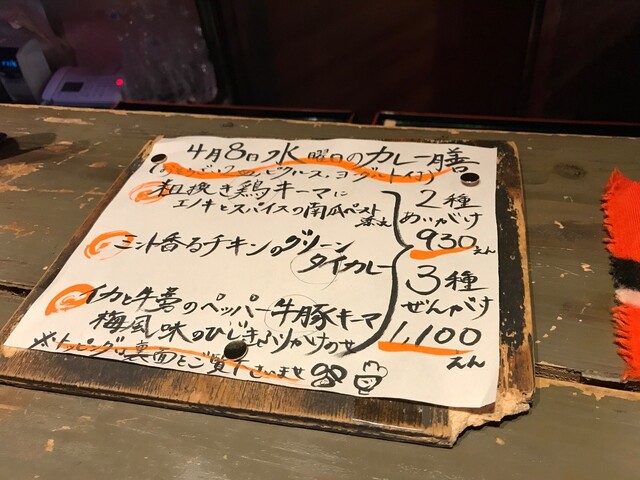 4月8日水曜日のカレー膳
ピクルス、ヨーグルト付)
粗挽き鶏キーマに
エノキとスパイスの南瓜ペースト
添え
ミント香るチキンのグリーン
タイカレー
イカと牛蒡のペッパー牛豚キーマ
梅風味のひじきふりかけのせ
2種
あいがけ
930えん
3種
ぜんがけ
1,100
えん
※トッピングは裏面をご覧下さいませ